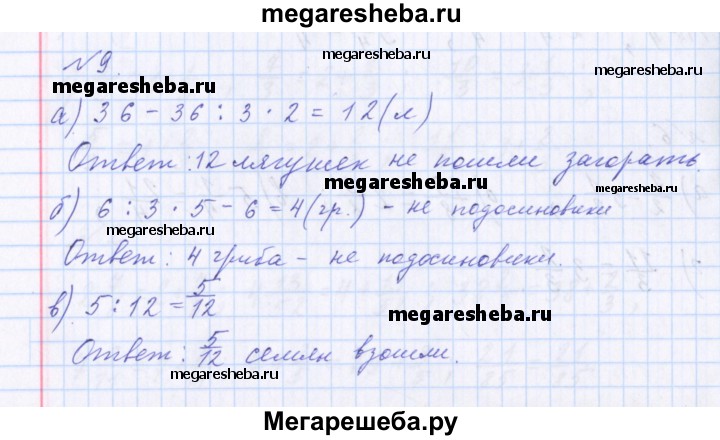 megaresheba.ru
N 9.
megaresheba.ru
megaresheba.ru
а) 36 - 36 : 3 · 2 = 12 (л)
Ответ: 12 лягушек не пошли загорать.
megaresheba.ru
megaresheba.ru
б) 6 : 3 · 5 - 6 = 4 (гр.) - не подосиновики
megaresheba.ru
Ответ: 4 гриба - не подосиновики.
в) 5 : 12 = 5/12
megaresheba.ru
Ответ: 5/12 семян взошли.
megaresheba.ru
Мегарешеба.ру